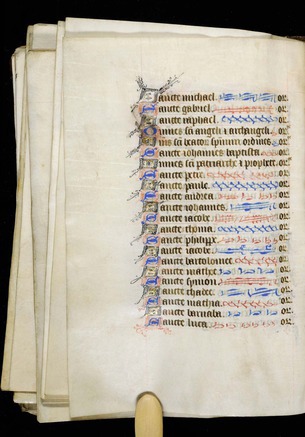 Sancte michael. or.
Sancte gabriel. or.
Sancte raphael. or.
Omnes sci angeli i archangeli. or.
Omnes sci beator spirituum ordines. or.
Sancte iohannes baptista. or.
Omnes sci patriarche i prophete. or.
Sancte petre. or.
Sancte paule. or.
Sancte andrea. or.
Sancte iohannes. or.
Sancte iacobe. or.
Sancte thoma. or.
Sancte philippe. or.
Sancte iacobe. or.
Sancte bartolomee. or.
Sancte mathee. or.
Sancte symon. or.
Sancte thadee. or.
Sancte mathia. or.
Sancte barnaba. or.
Sancte luca. or.